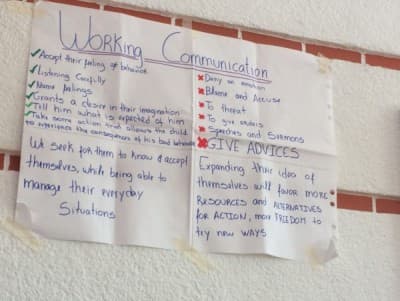 Working Communication
✓ Accept their feeling & behavior
✓ Listening Carefully
✓ Name feelings
✓ Grants a desire in their imagination
✓ Tell him what is expected of him
✓ Take some action that allows the child
to experience the consequences of his bad behavior
We seek for them to know & accept
themselves, while being able to
manage their everyday
Situations
✗ Deny an emotion
✗ Blame and Accuse
✗ To threat
✗ To give orders
✗ Speeches and Sermons
✗ GIVE ADVICES
Expanding their idea of
themselves will favor more
RESOURCES and ALTERNATIVES
for ACTION, more FREEDOM to
try new WAYS